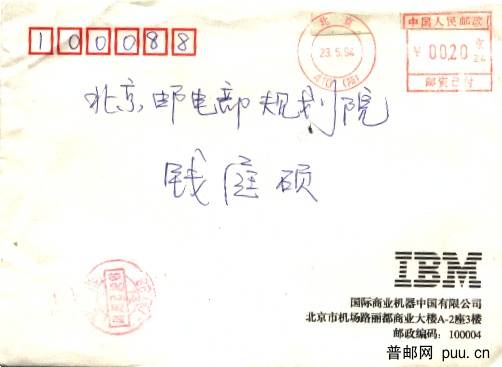 100088
北京
23.5.94
中国人民邮政
¥ 0020
京
邮资已付
北京邮电部规划院
钱庭硕
IBM
国际商业机器中国有限公司
北京市机场路丽都商业大楼A-2座3楼
邮政编码：100004
普邮网 puu.cn